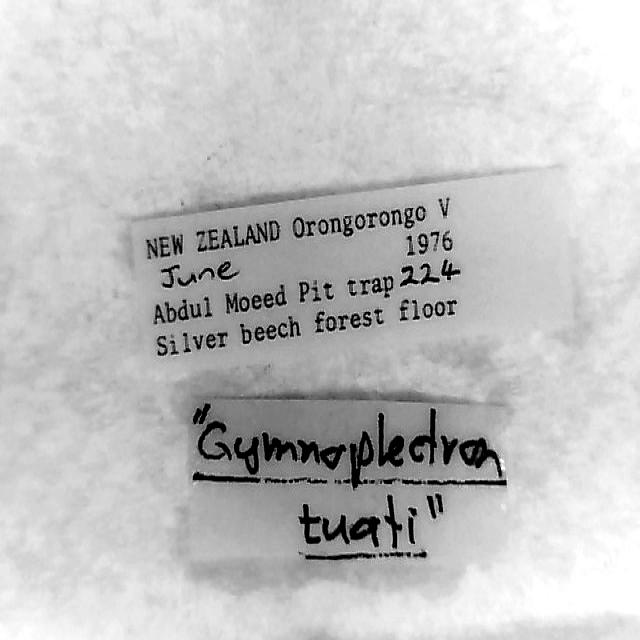 NEW ZEALAND Orongorongo V
June 1976
Abdul Moeed Pit trap 224
Silver beech forest floor
"Gymnoplectron
tuati"